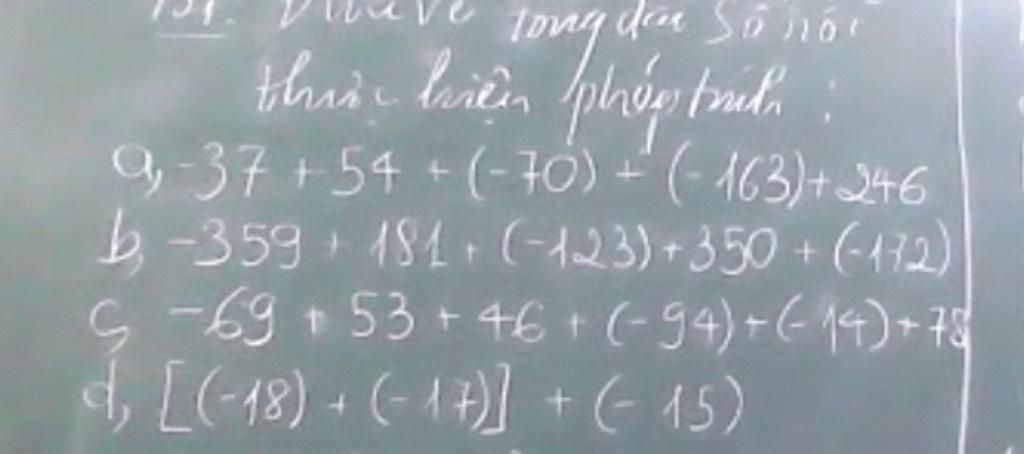 131. Đưa về tổng đại số rồi
thực hiện phép tính :
a, -37 + 54 + (-70) + (-163) + 246
b, -359 + 181 + (-123) + 350 + (-172)
c, -69 + 53 + 46 + (-94) + (-14) + 78
d, [(-18) + (-17)] + (-15)